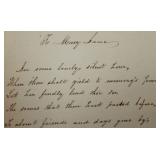 To Mary Jane
In some lonely silent hour,
When thou shalt yield to memory's power
Let her fondly lead thee o'er
The scenes that thou hast passed before,
To absent friends and days gone by,